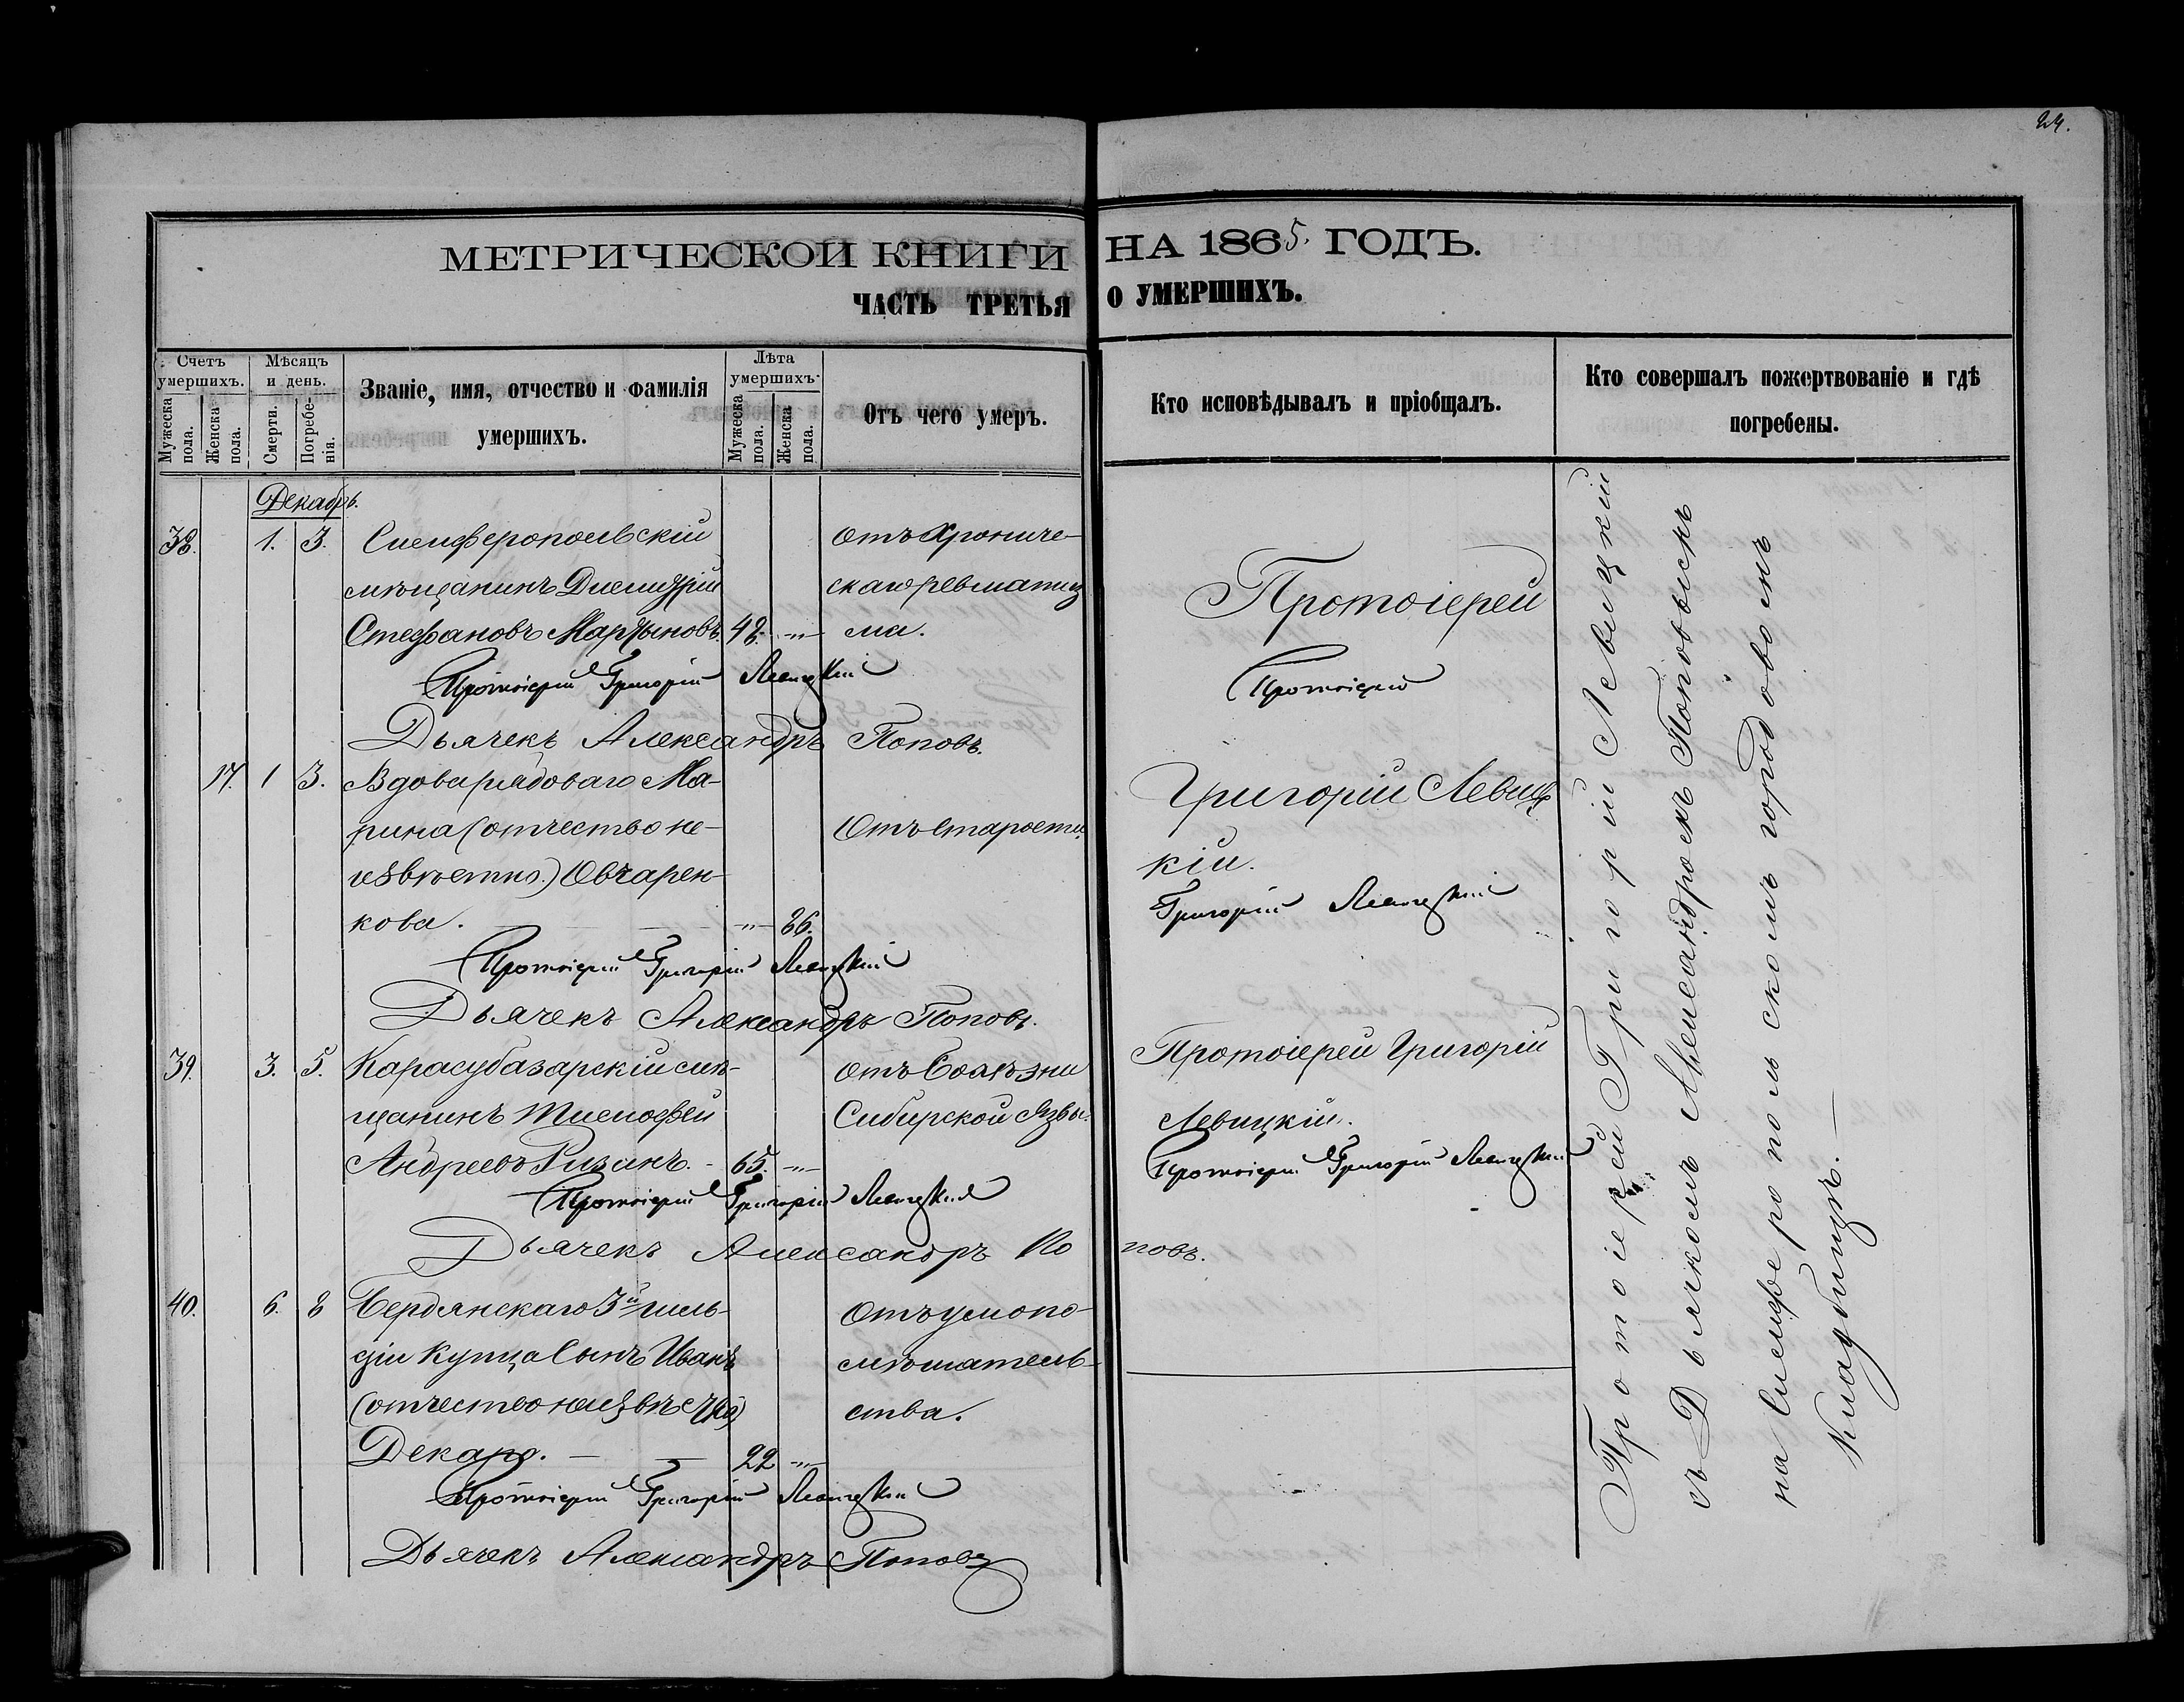 24.
МЕТРИЧЕСКОЙ КНИГИ НА 1865. ГОДЪ.
ЧАСТЬ ТРЕТЬЯ О УМЕРШИХЪ.
Счетъ умершихъ.
Мужеска пола.
Женска пола.
Мѣсяцъ и день.
Смерти.
Погребенія.
Званіе, имя, отчество и фамилія
умершихъ.
Лѣта умершихъ.
Мужеска пола.
Женска пола.
Отъ чего умеръ.
Кто исповѣдывалъ и пріобщалъ.
Кто совершалъ пожертвованіе и гдѣ
погребены.
Декабрь.
38. 1. 3. Симферопольскій отъ Хрониче-
мѣщанинъ Димитрій скаго ревматиз
Стефановъ Мартыновъ. 48. -"- ма.
Протоіерей Григорій Левицкій
Дьячекъ Александръ Поповъ.
17. 1 3. Вдова рядоваго Ма-
рина (отчество не- Отъ старости
извѣстно.) Овчарен-
кова. -"- 86.
Протоіерей Григорій Левицкій
Дьячекъ Александръ Поповъ.
39. 3. 5. Карасубазарскій мѣ- отъ Болѣзни
щанинъ Тимофей Сибирской Язвы.
Андреевъ Ризинъ. - 65. -"-
Протоіерей Григорій Левицкій
Дьячекъ Александръ По повъ.
40. 6. 8 Бердянскаго 3й гиль- Отъ умопо-
діи Купца Сынъ Иванъ мѣшатель-
(отчество неизвѣстно) ства.
22 -"-
Протоіерей Григорій Левицкій
Дьячекъ Александръ Поповъ
Протоіерей
Протоіерей
Григорій Левиц
кій.
Григорій Левицкій
Протоіерей Григорій
Левицкій.
Протоіерей Григорій Левицкій
Протоіерей Григорій Левицкій
съ Дьячкомъ Александромъ Поповымъ
на Симферопольскомъ городовомъ
Кладбищѣ.